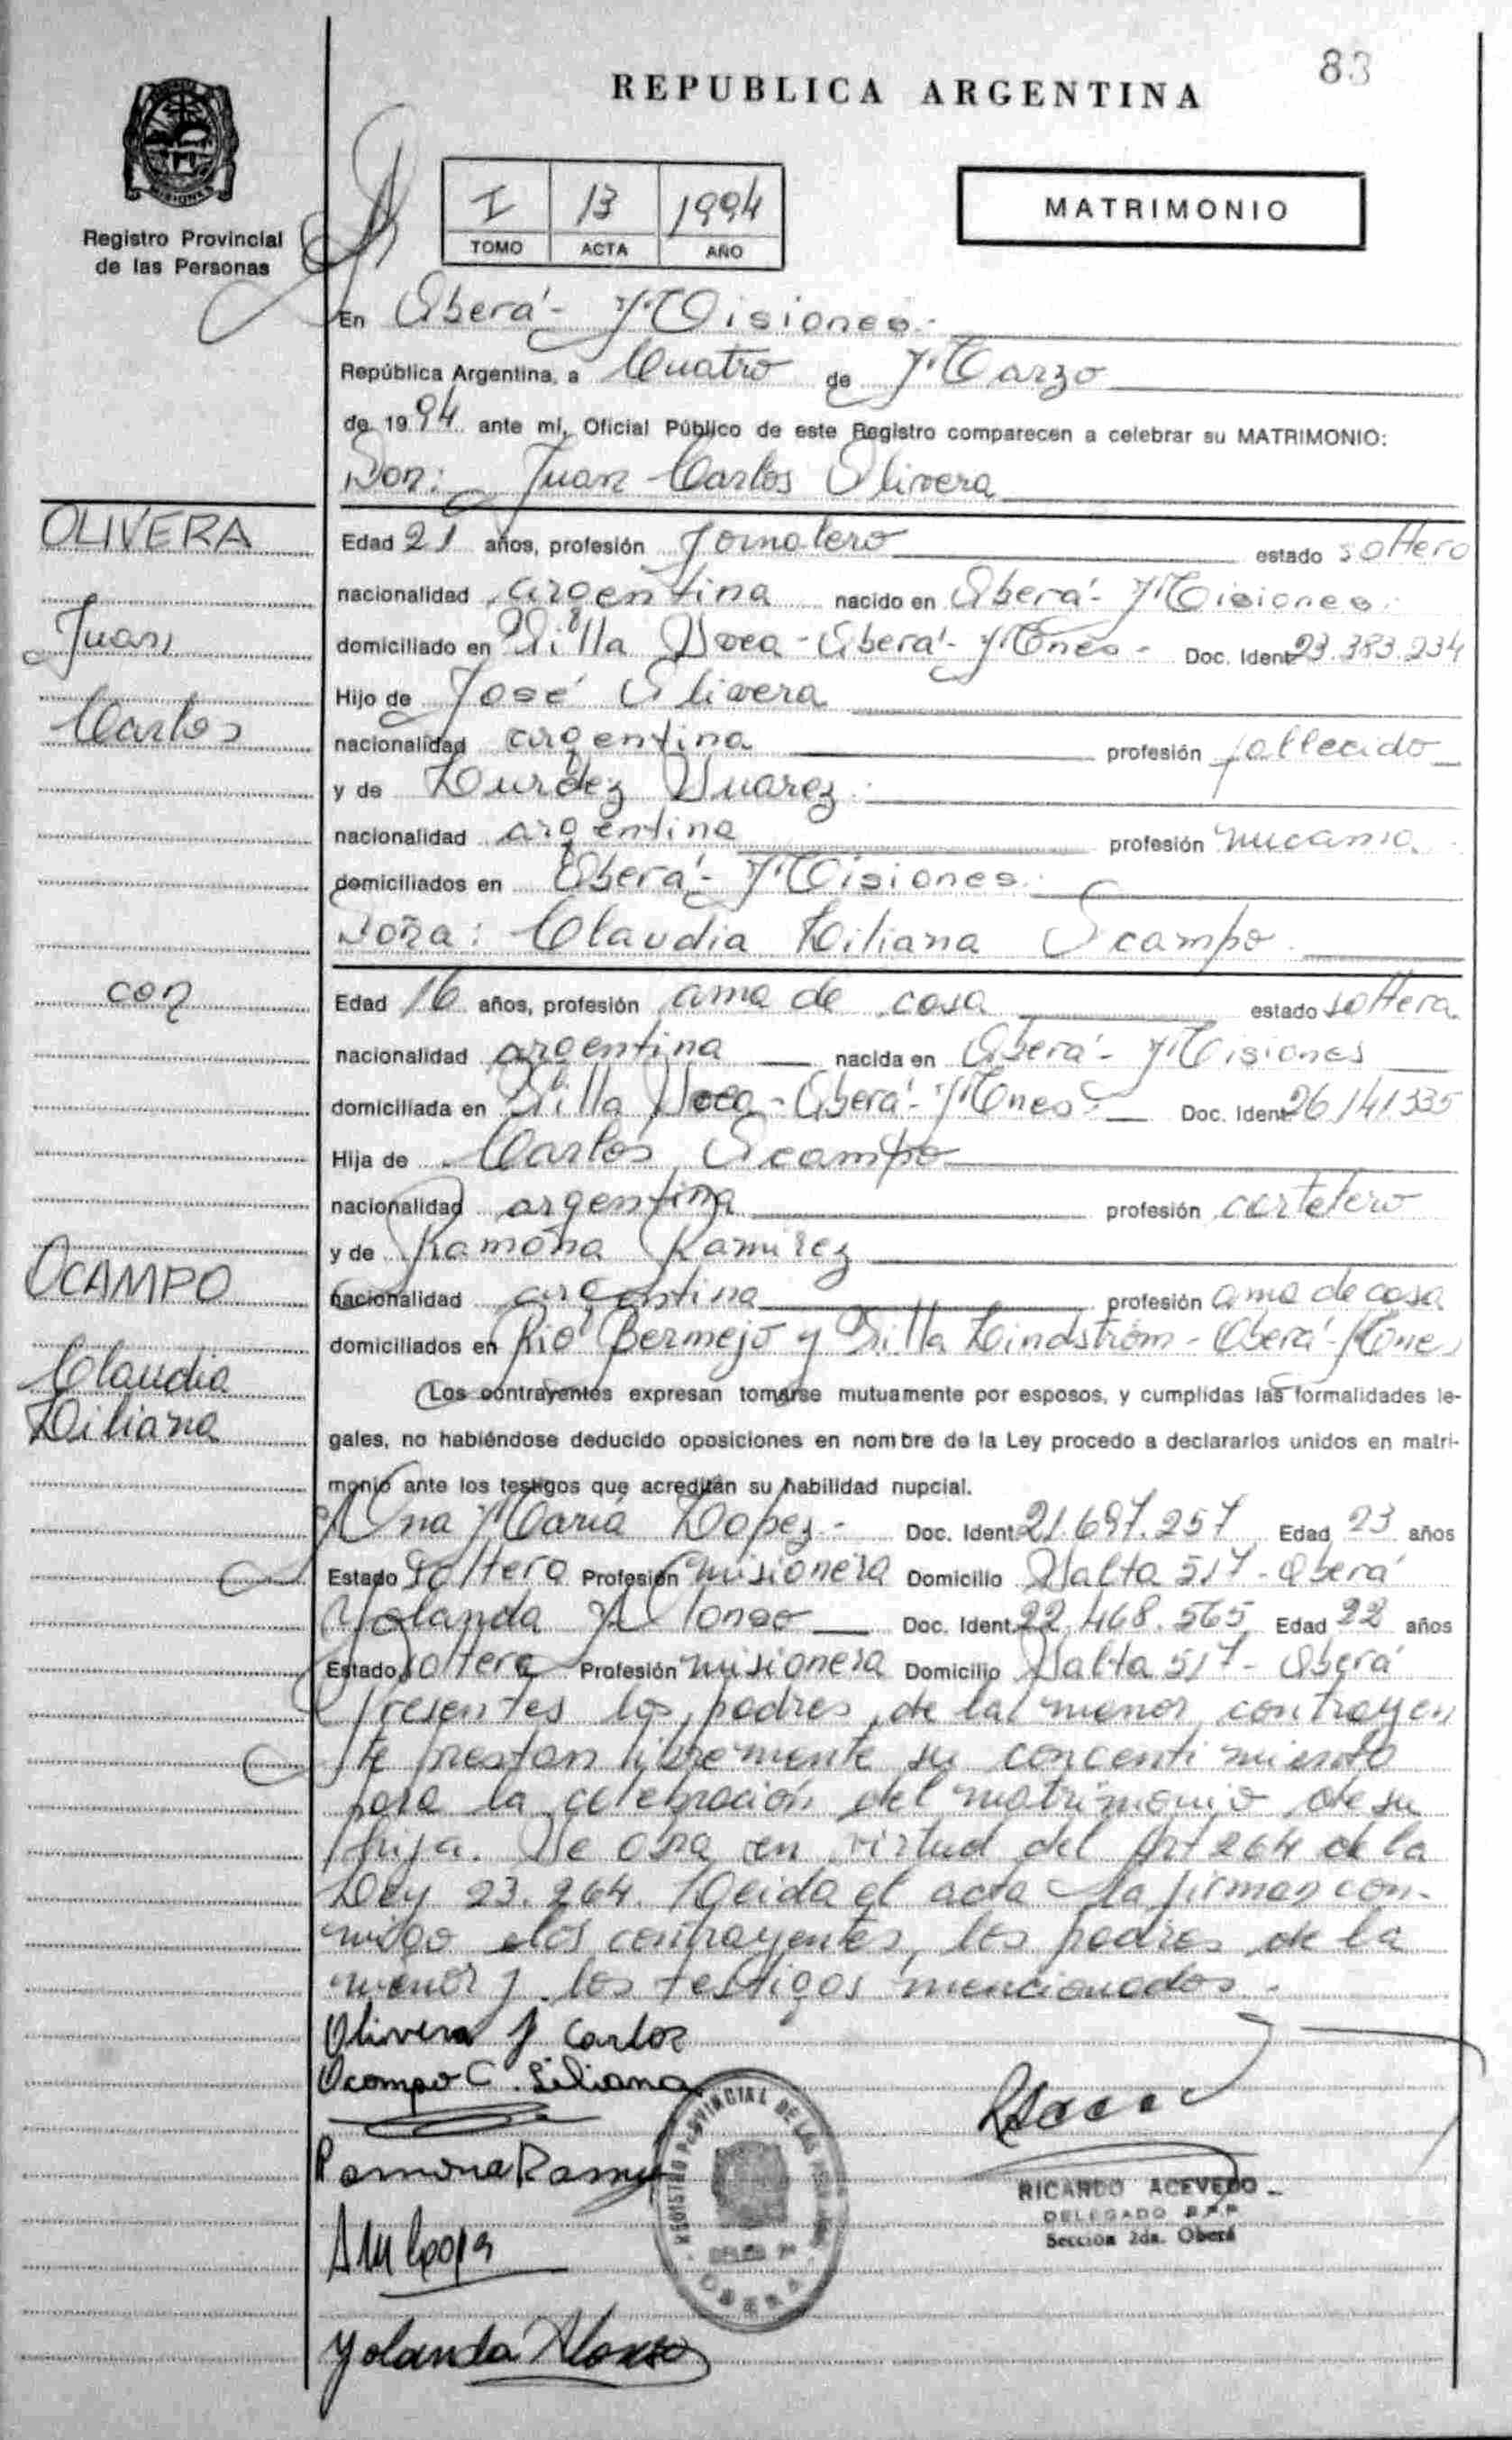 83
REPUBLICA ARGENTINA
MISIONES
Registro Provincial
de las Personas
I 13 1994
TOMO ACTA AÑO
MATRIMONIO
En Oberá - Misiones.-
República Argentina, a Cuatro de Marzo
de 1994 ante mí, Oficial Público de este Registro comparecen a celebrar su MATRIMONIO:
Don: Juan Carlos Olivera
OLIVERA
Juan
Carlos
con
OCAMPO
Claudia
Liliana
Edad 21 años, profesión Jornalero estado soltero
nacionalidad argentina nacido en Oberá - Misiones.
domiciliado en Villa - Oberá - Mnes - Doc. Ident 23.383.234
Hijo de José Olivera
nacionalidad argentina profesión fallecido
y de Lurdez Suarez.
nacionalidad argentina profesión
domiciliados en Oberá - Misiones.
Doña: Claudia Liliana Ocampo.
Edad 16 años, profesión ama de casa estado soltera.
nacionalidad argentina nacida en Oberá - Misiones
domiciliada en Villa - Oberá - Mnes - Doc. Ident 26141335
Hija de Carlos Ocampo
nacionalidad argentina profesión
y de Ramona Ramirez
nacionalidad argentina profesión ama de casa
domiciliados en Rio Bermejo y Villa Lindström - Oberá - Mnes
Los contrayentes expresan tomarse mutuamente por esposos, y cumplidas las formalidades le-
gales, no habiéndose deducido oposiciones en nombre de la Ley procedo a declararlos unidos en matri-
monio ante los testigos que acreditán su habilidad nupcial.
Ana Maria Lopez - Doc. Ident. 21.697.257 Edad 23 años
Estado Soltera Profesión misionera Domicilio Salta 517 - Oberá
Yolanda Alonso Doc. Ident. 22.468.565 Edad 22 años
Estado soltera Profesión misionera Domicilio Salta 517 - Oberá
Presentes los padres de la menor contrayen
te prestan libremente su concentimiento
para la celebración del matrimonio de su
hija. Se obra en virtud del Art 264 de la
Ley 23.264. Leida el acta la firman con-
migo los contrayentes, los padres de la
menor y los testigos mencionados.-
Olivera J Carlos
Ocampo C. Liliana
Ramona Ramirez
AMLopez
Yolanda Alonso
REGISTRO PROVINCIAL DE LAS PERSONAS
OBERA
RICARDO ACEVEDO
DELEGADO R.P.P.
Sección 2da. Oberá